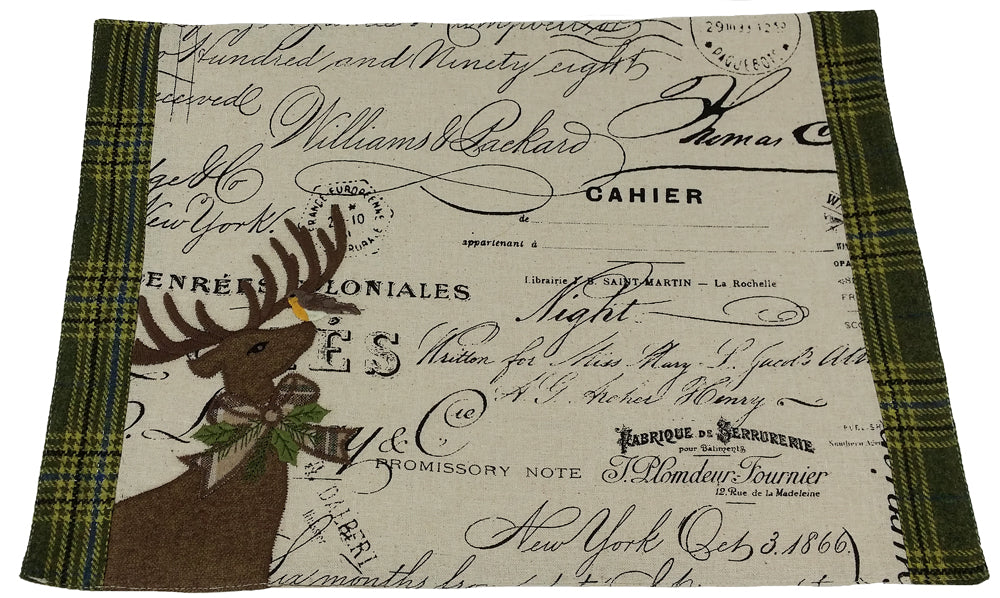 29 III 33 12 30
PAQUEBOTS
Hundred and Ninety eight
received
Williams & Packard
Thomas C
ge & Co
New York.
CAHIER
FRANCE EUROPÉENNE
10
RURALE
de
appartenant à
ENRÉES COLONIALES
Librairie J. B. SAINT-MARTIN — La Rochelle
Night
ÉS
Written for Miss Mary L. Jacob's Al
A. G. Archer Henry
y & Cie
FABRIQUE DE SERRURERIE
pour Bâtiments
PROMISSORY NOTE
J. Plomdeur-Fournier
12, Rue de la Madeleine
DALBERT
New York Oct 3. 1866.
six months